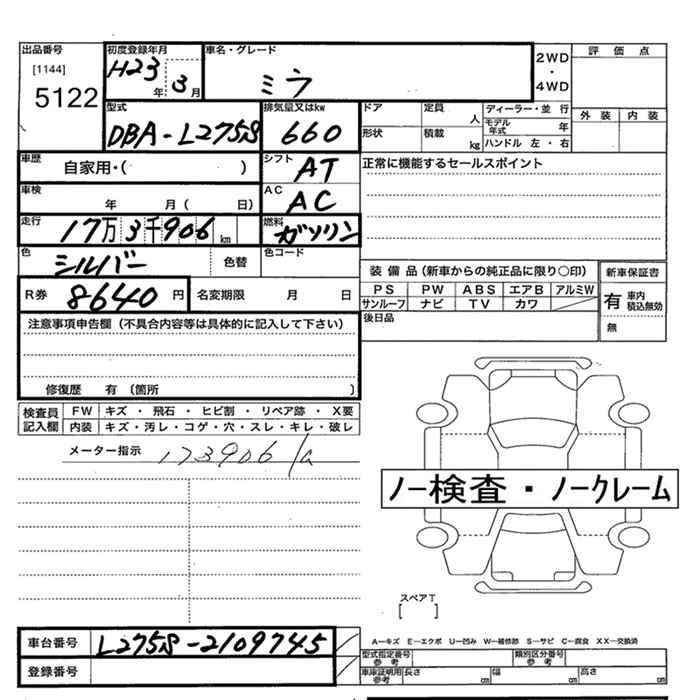 出品番号 初度登録年月 車名・グレード 評価点
[1144] H23年 3月 ミラ 2WD・4WD
5122 外装 内装
型式 排気量又はkw ドア 定員 人 ディーラー・並行
DBA-L275S 660 形状 積載 kg モデル年式 年
ハンドル 左・右
車歴 自家用・( ) シフト AT 正常に機能するセールスポイント
車検 年 月( 日) AC AC
走行 17万3千906km 燃料 ガソリン
色 シルバー 色替 色コード
装備品(新車からの純正品に限り○印) 新車保証書
R券 8640円 名変期限 月 日 PS PW ABS エアB アルミW 有 車内積込無効
サンルーフ ナビ TV カワ
注意事項申告欄(不具合内容等は具体的に記入して下さい) 後日品 無
修復歴 有 〔箇所 〕
検査員記入欄 FW キズ・飛石・ヒビ割・リペア跡・X要
内装 キズ・汚レ・コゲ・穴・スレ・キレ・破レ
メーター指示 173906
ノー検査・ノークレーム
スペアT
[ ]
車台番号 L275S-2109745 A-キズ E-エクボ U-凹み W-補修跡 S-サビ C-腐食 XX-交換済
型式指定番号 参考 類別区分番号 参考
登録番号 車庫証明用 参考 長さ cm 幅 cm 高さ cm